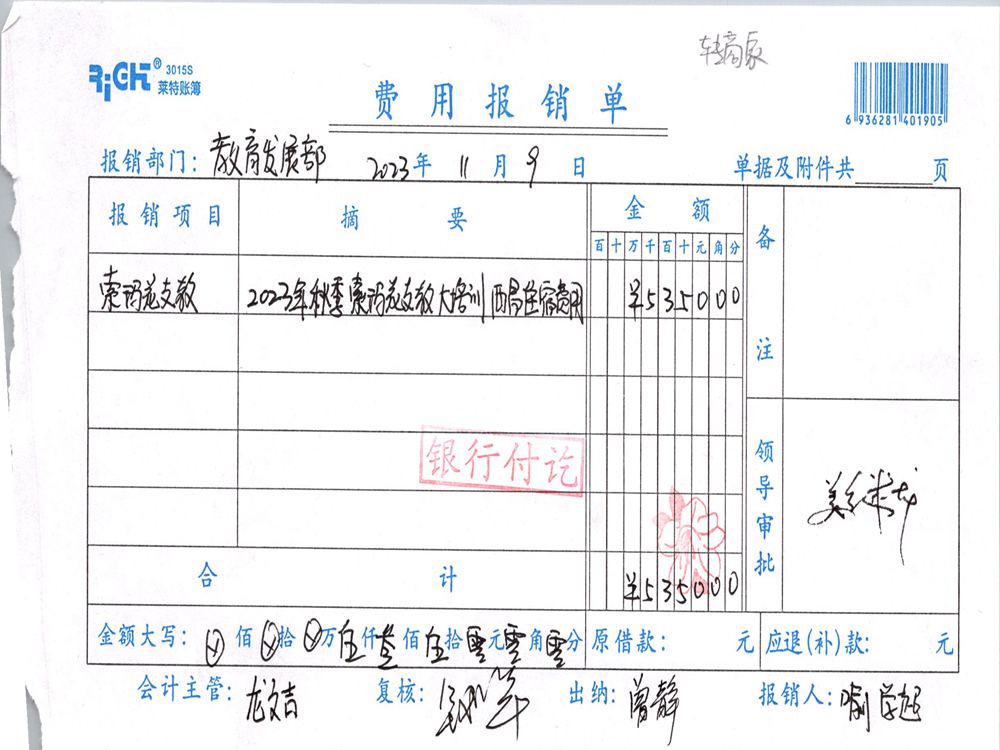 转商家
RiCHT® 3015S
莱特账簿
费用报销单
6 936281 401905
报销部门: 教育发展部 2023年 11月 9日 单据及附件共 页
报销项目 摘要 金额 备注
百十万千百十元角分
索玛花支教 2023年秋季索玛花支教大培训西昌住宿费用 ¥535000
银行付讫
领导审批
合计 ¥535000
金额大写: ⊗佰⊗拾⊗万伍仟叁佰伍拾零元零角零分 原借款: 元 应退(补)款: 元
会计主管: 龙文吉 复核: 出纳: 曾静 报销人: